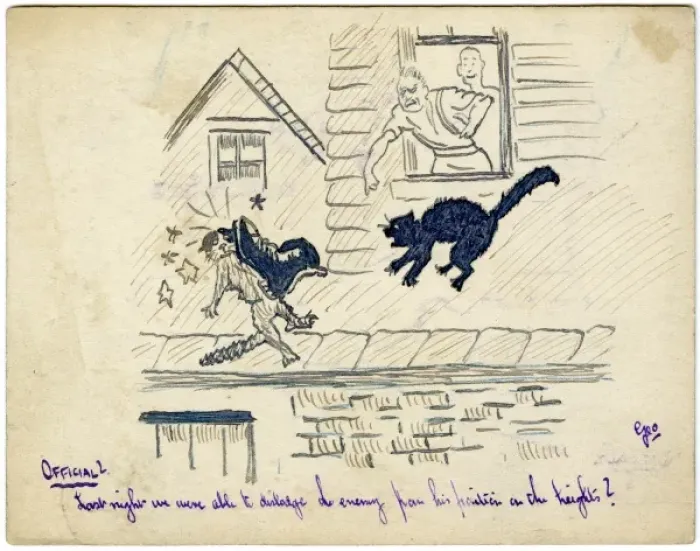 Geo
OFFICIAL?
Last night we were able to dislodge the enemy from his position on the heights?